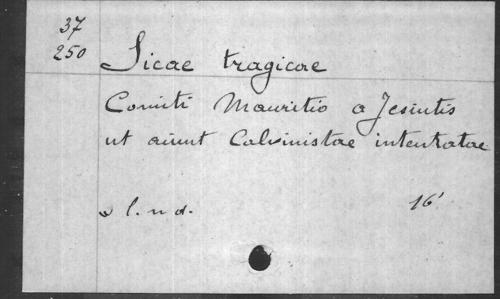 37
250
Sicae tragicae
Comiti Mauritio a Jesuitis
ut aiunt Calvinistae intentatae
s l. n d. 16'